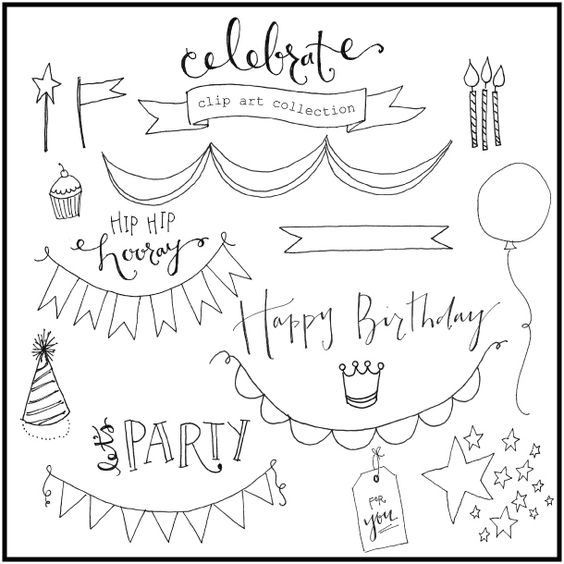 celebrate
clip art collection
HIP HIP
hooray
Happy Birthday
let's PARTY
FOR
you